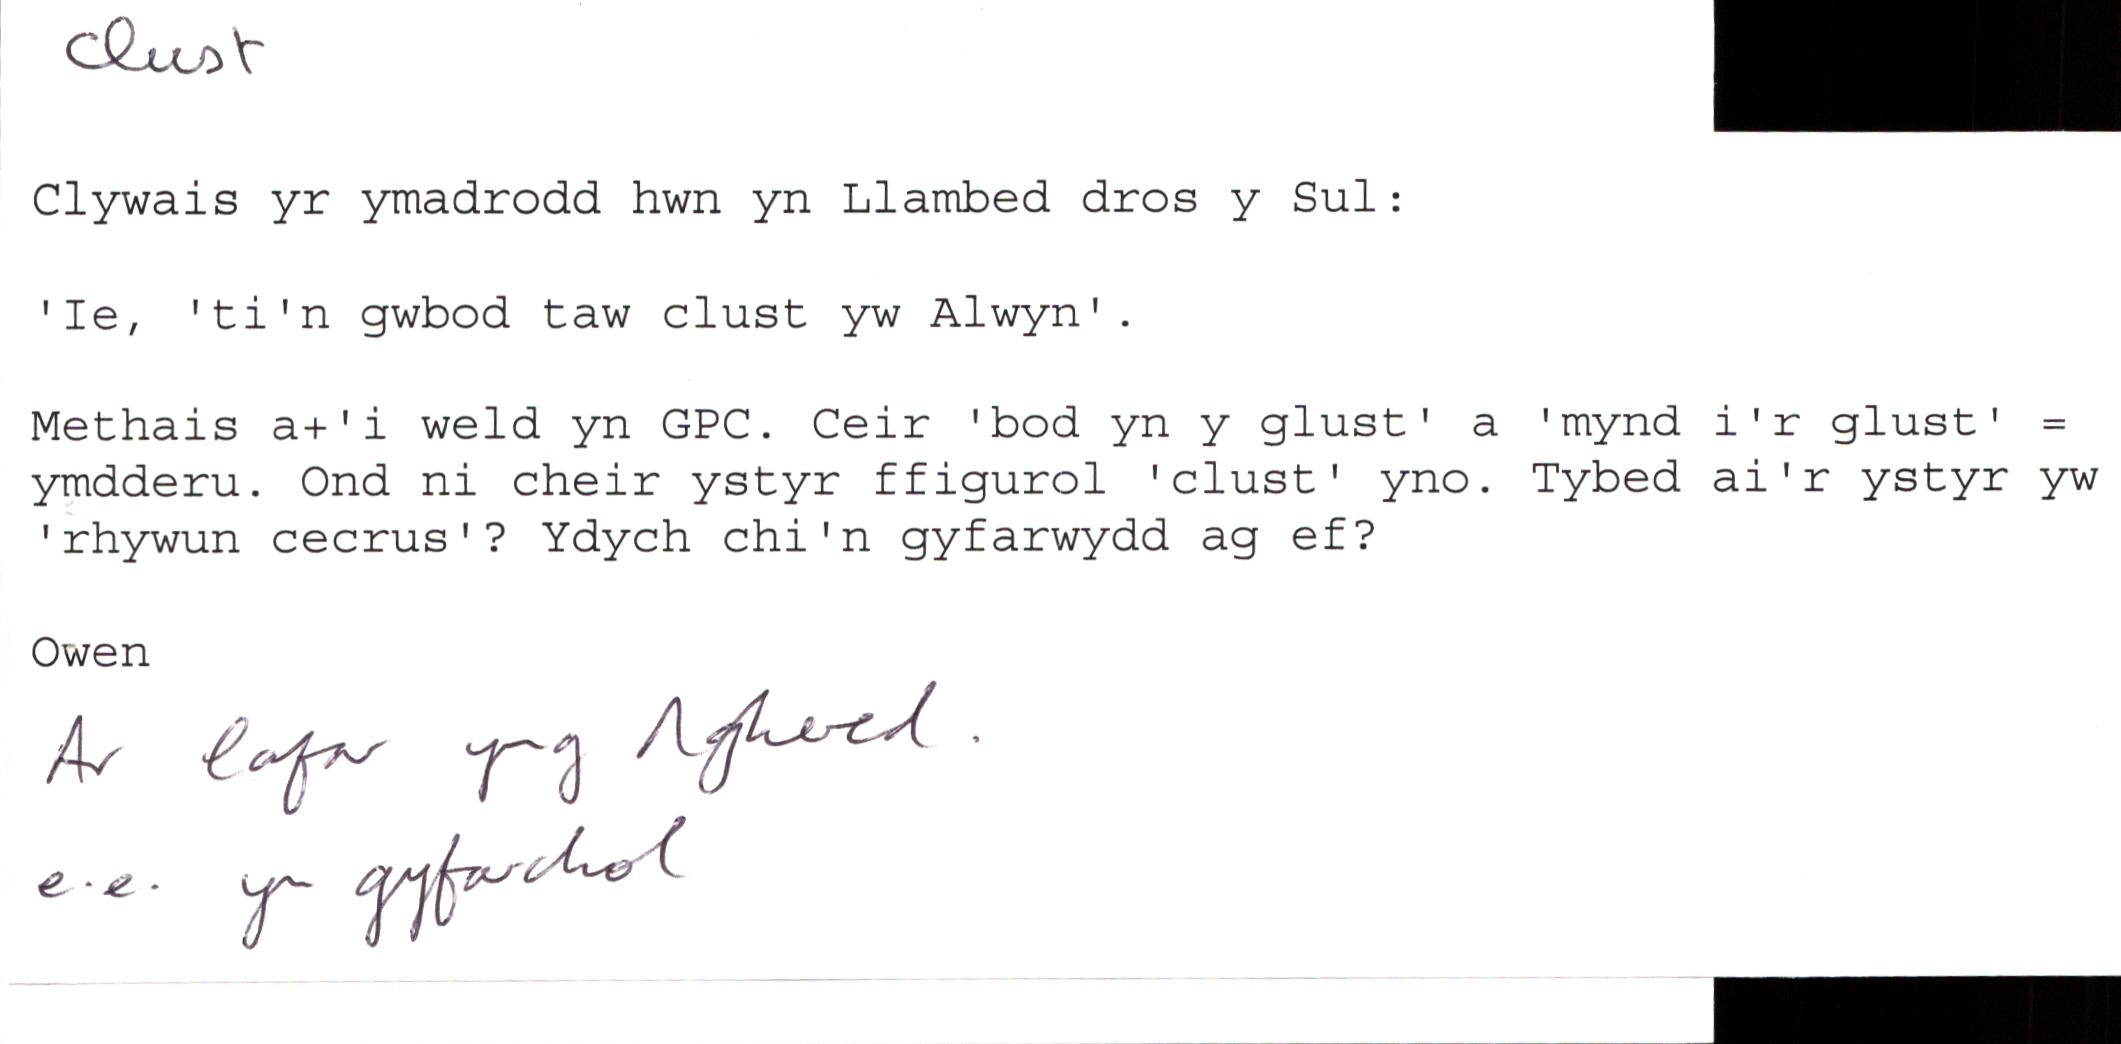 clust
Clywais yr ymadrodd hwn yn Llambed dros y Sul:
'Ie, 'ti'n gwbod taw clust yw Alwyn'.
Methais a+'i weld yn GPC. Ceir 'bod yn y glust' a 'mynd i'r glust' =
ymdderu. Ond ni cheir ystyr ffigurol 'clust' yno. Tybed ai'r ystyr yw
'rhywun cecrus'? Ydych chi'n gyfarwydd ag ef?
Owen
Ar lafar yng Nghered.
e.e. yn gyfarchol